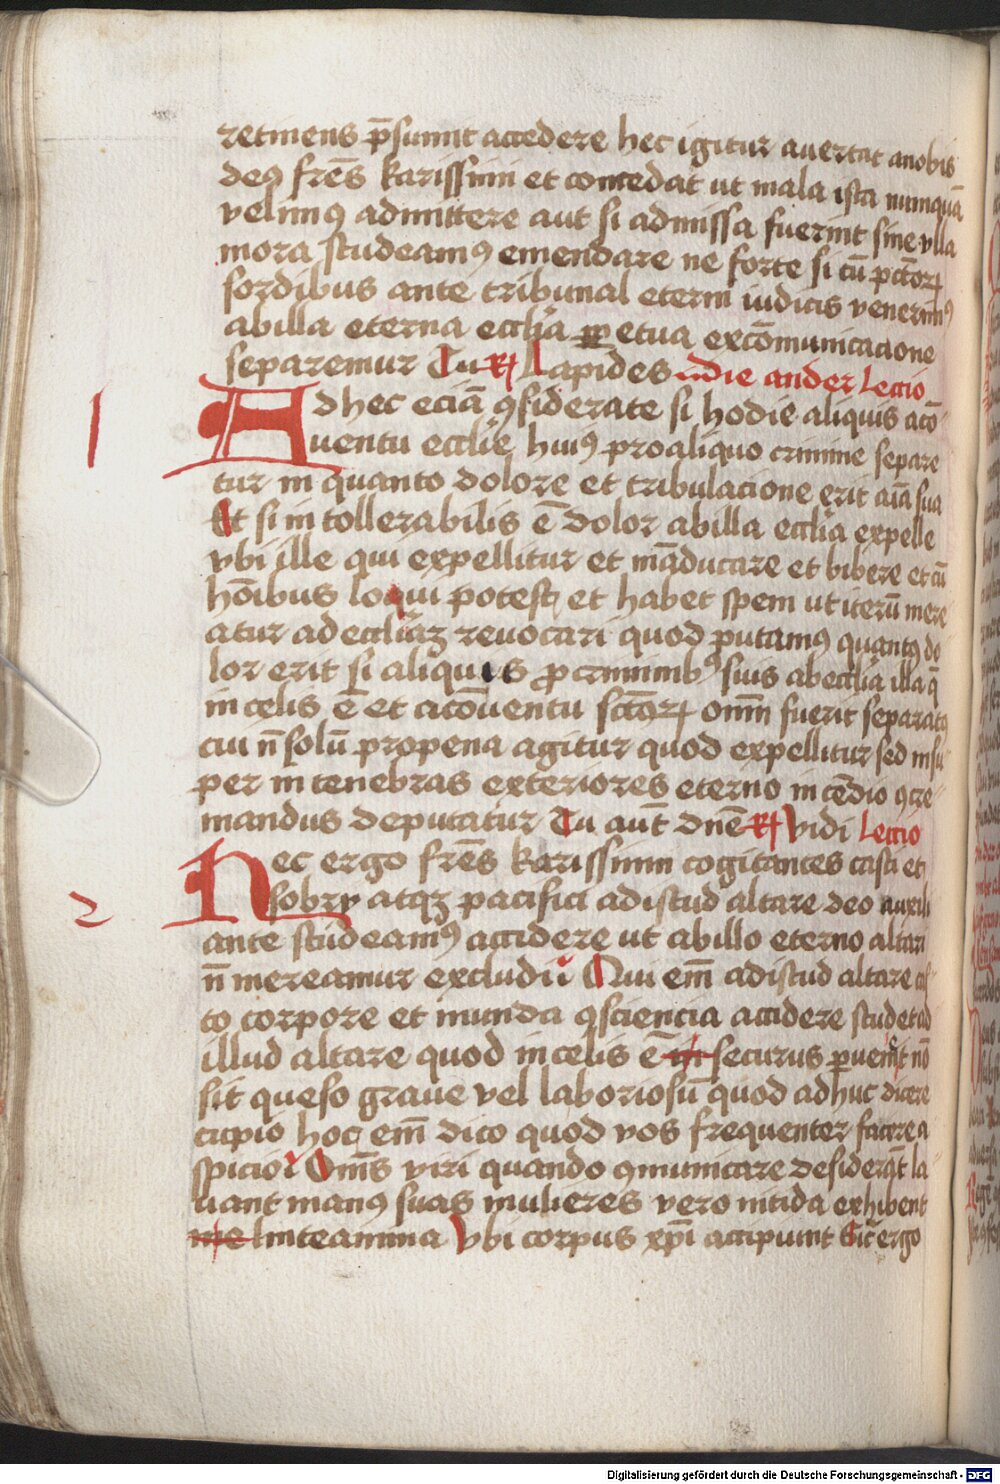 retinens p̄sumit accedere hec igitur auertat anobis
deꝰ frēs karissimi et concedat ut mala ista nunquā
velimꝰ admittere aut si admissa fuerint sine vlla
mora studeamꝰ emendare ne forte si cū pctōrꝝ
sordibus ante tribunal eterni iudicis venerimꝰ
abilla eterna ecclīa ꝑpetua excōmunicacione
separemur Tu ℟ Lapides indie ander Lectio
1 Ad hec eciā ꝯsiderate si hodie aliquis acō
uentu ecclīe huiꝰ proaliquo crimine separe
tur in quanto dolore et tribulacione erit aīa sua
Et si in tollerabilis ē dolor abilla ecclīa expelle
vbi ille qui expellitur et māducare et bibere et cū
hōībus loqui potest et habet spem ut iterū mere
atur ad ecclīaꝫ reuocari quod putamꝰ quantꝰ do
lor erit si aliquis ꝓ criminibꝰ suis abecclīa illa q̄
in celis ē et acōuentu sctōrꝝ omīm fuerit separatꝰ
cui n̄ solū propena agitur quod expellitur sed insu
per in tenebras exteriores eterno incēdio ꝯcre
mandus deputatur Tu aūt dnē ℟ Vidi Lectio
2 Hec ergo frēs karissimi cogitantes casti et
sobry atqꝫ pacifici ad istud altare deo auxili
ante studeamꝰ accidere ut abillo eterno altari
n̄ mereamur excludi Qui em̄ adistud altare cas
to corpore et munda ꝯsciencia accidere studet ad
illud altare quod in celis ē securus ꝑueniet nō
sit queso graue vel laboriosū quod adhuc dicere
cupio hoc em̄ dico quod vos frequenter facere a
spicio Om̄s viri quando ꝯmunicare desiderāt la
uant manꝰ suas mulieres vero nitida exhibent
linteamina Vbi corpus xp̄i accipiunt Sic ergo
Digitalisierung gefördert durch die Deutsche Forschungsgemeinschaft - DFG